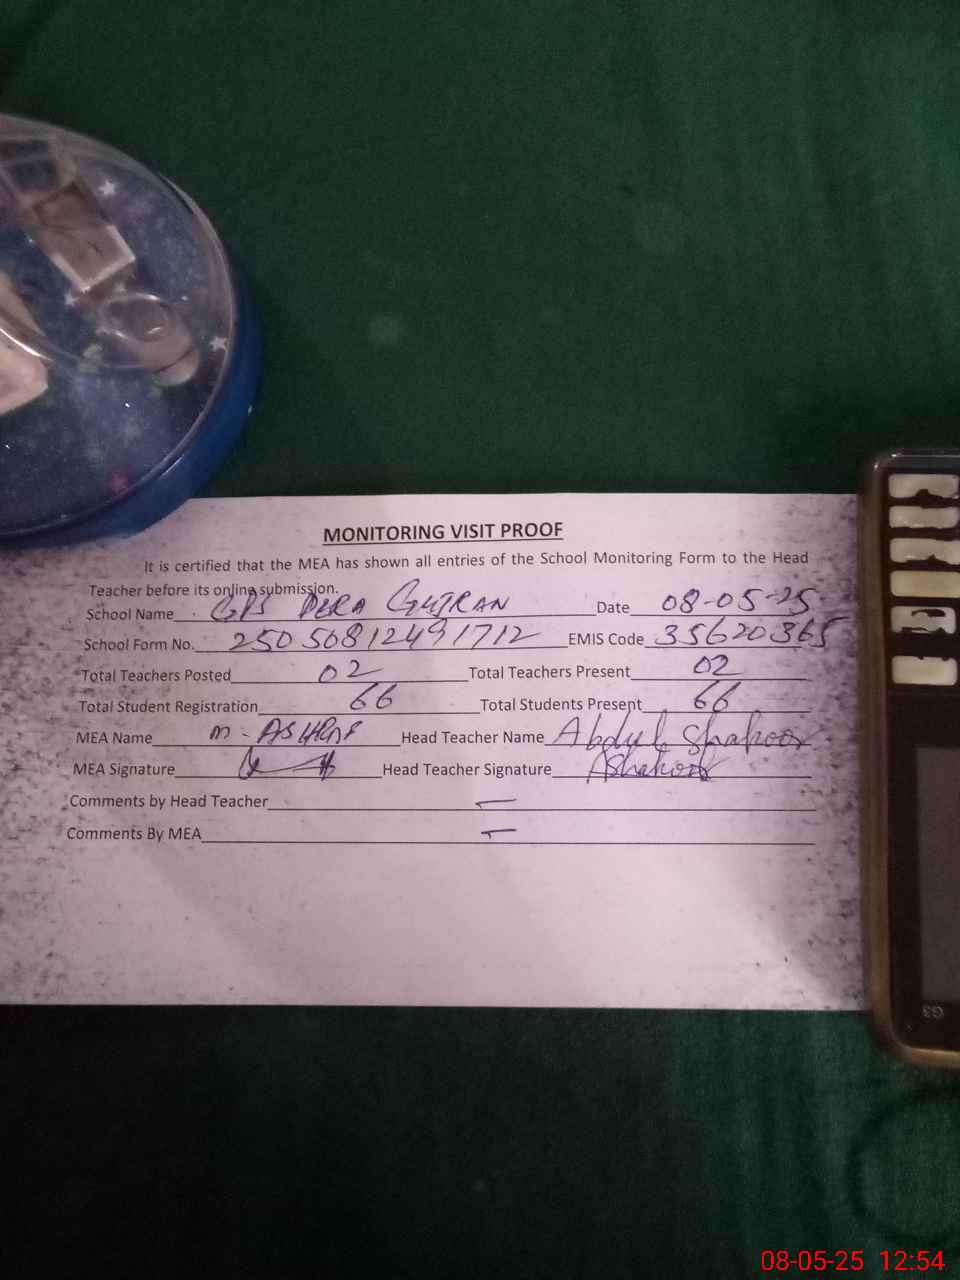 MONITORING VISIT PROOF
It is certified that the MEA has shown all entries of the School Monitoring Form to the Head
Teacher before its online submission.
School Name GPS DERA GUJRAN Date 08-05-25
School Form No. 25050812491712 EMIS Code 35620365
Total Teachers Posted 02 Total Teachers Present 02
Total Student Registration 66 Total Students Present 66
MEA Name M-ASHRAF Head Teacher Name Abdul Shakoor
MEA Signature Head Teacher Signature AShakoor
Comments by Head Teacher —
Comments By MEA —
G3
08-05-25 12:54